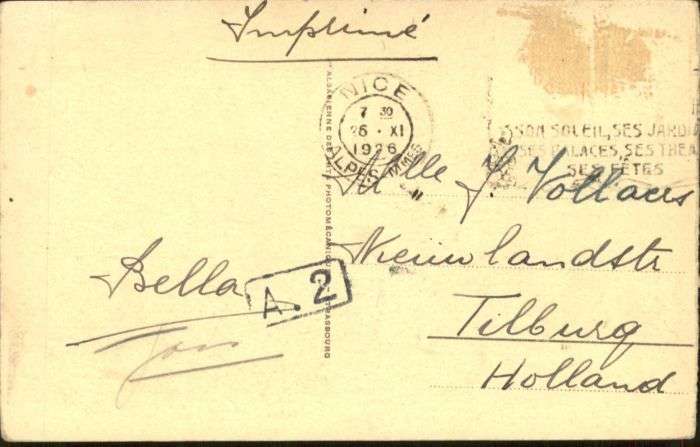 Imprimé
NICE
7 30
26 · XI
1926
ALPES MMES
SON SOLEIL, SES JARDI
SES PALACES, SES THEA
SES FÊTES
Melle J. Vollaers
Nieuwlandstr
Tilburg
Holland
Bella
A. 2
ALSACIENNE DES ARTS PHOTOMÉCANIQUES STRASBOURG